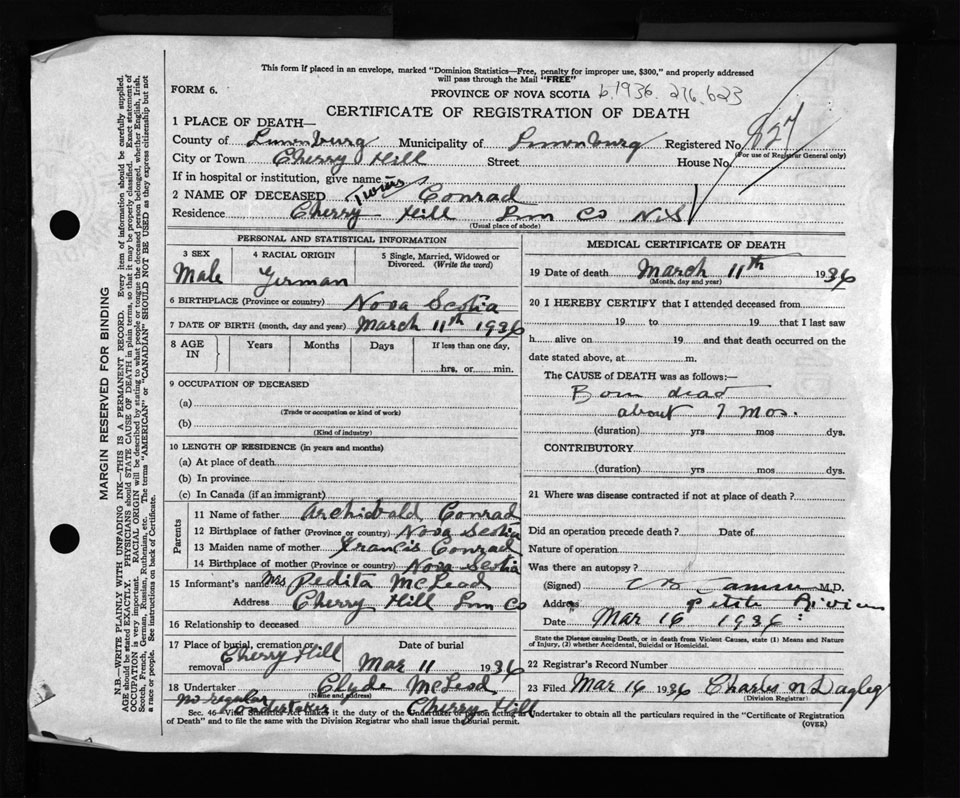 This form if placed in an envelope, marked "Dominion Statistics—Free, penalty for improper use, $300," and properly addressed
will pass through the Mail "FREE"
FORM 6.
PROVINCE OF NOVA SCOTIA b.1936. 276.623
CERTIFICATE OF REGISTRATION OF DEATH
1 PLACE OF DEATH—
County of Lunenburg Municipality of Lunenburg Registered No. 827
(For use of Registrar General only)
City or Town Cherry Hill Street House No.
If in hospital or institution, give name
2 NAME OF DECEASED Twins Conrad
Residence Cherry Hill Lun Co N.S
(Usual place of abode)
PERSONAL AND STATISTICAL INFORMATION
3 SEX Male
4 RACIAL ORIGIN German
5 Single, Married, Widowed or Divorced. (Write the word)
6 BIRTHPLACE (Province or country) Nova Scotia
7 DATE OF BIRTH (month, day and year) March 11th 1936
8 AGE IN Years Months Days If less than one day, hrs. or min.
9 OCCUPATION OF DECEASED
(a)
(Trade or occupation or kind of work)
(b)
(Kind of industry)
10 LENGTH OF RESIDENCE (in years and months)
(a) At place of death
(b) In province
(c) In Canada (if an immigrant)
Parents
11 Name of father Archibald Conrad
12 Birthplace of father (Province or country) Nova Scotia
13 Maiden name of mother Francis Conrad
14 Birthplace of mother (Province or country) Nova Scotia
15 Informant's name Mrs Pedita McLeod
Address Cherry Hill Lun Co
16 Relationship to deceased
17 Place of burial, cremation or removal Cherry Hill
Date of burial Mar 11 1936
18 Undertaker Clyde McLeod
(Name and address)
No regular undertaker Cherry Hill
MEDICAL CERTIFICATE OF DEATH
19 Date of death March 11th 1936
(Month, day and year)
20 I HEREBY CERTIFY that I attended deceased from
19 to 19 that I last saw
h alive on 19 and that death occurred on the
date stated above, at m.
The CAUSE of DEATH was as follows:—
Born dead
about 7 mos.
(duration) yrs mos dys.
CONTRIBUTORY
(duration) yrs mos dys.
21 Where was disease contracted if not at place of death?
Did an operation precede death? Date of
Nature of operation
Was there an autopsy?
(Signed) M.D.
Address Petite Riviere
Date Mar 16 1936
State the Disease causing Death, or in death from Violent Causes, state (1) Means and Nature
of Injury, (2) whether Accidental, Suicidal or Homicidal.
22 Registrar's Record Number
23 Filed Mar 16 1936 Charles N Dagley
(Division Registrar)
Sec. 46—Vital Statistics Act makes it the duty of the Undertaker or person acting as Undertaker to obtain all the particulars required in the "Certificate of Registration
of Death" and to file the same with the Division Registrar who shall issue the burial permit.
(OVER)
MARGIN RESERVED FOR BINDING
N.B.—WRITE PLAINLY WITH UNFADING INK—THIS IS A PERMANENT RECORD. Every item of information should be carefully supplied.
AGE should be stated EXACTLY. PHYSICIANS should STATE CAUSE OF DEATH in plain terms, so that it may be properly classified. Exact statement of
OCCUPATION is very important. RACIAL ORIGIN will be described by stating to what people or tongue the deceased person belonged, whether English, Irish,
Scotch, French, German, Russian, Ruthenian, etc. The terms "AMERICAN" or "CANADIAN" SHOULD NOT BE USED as they express citizenship but not
a race or people. See instructions on back of Certificate.